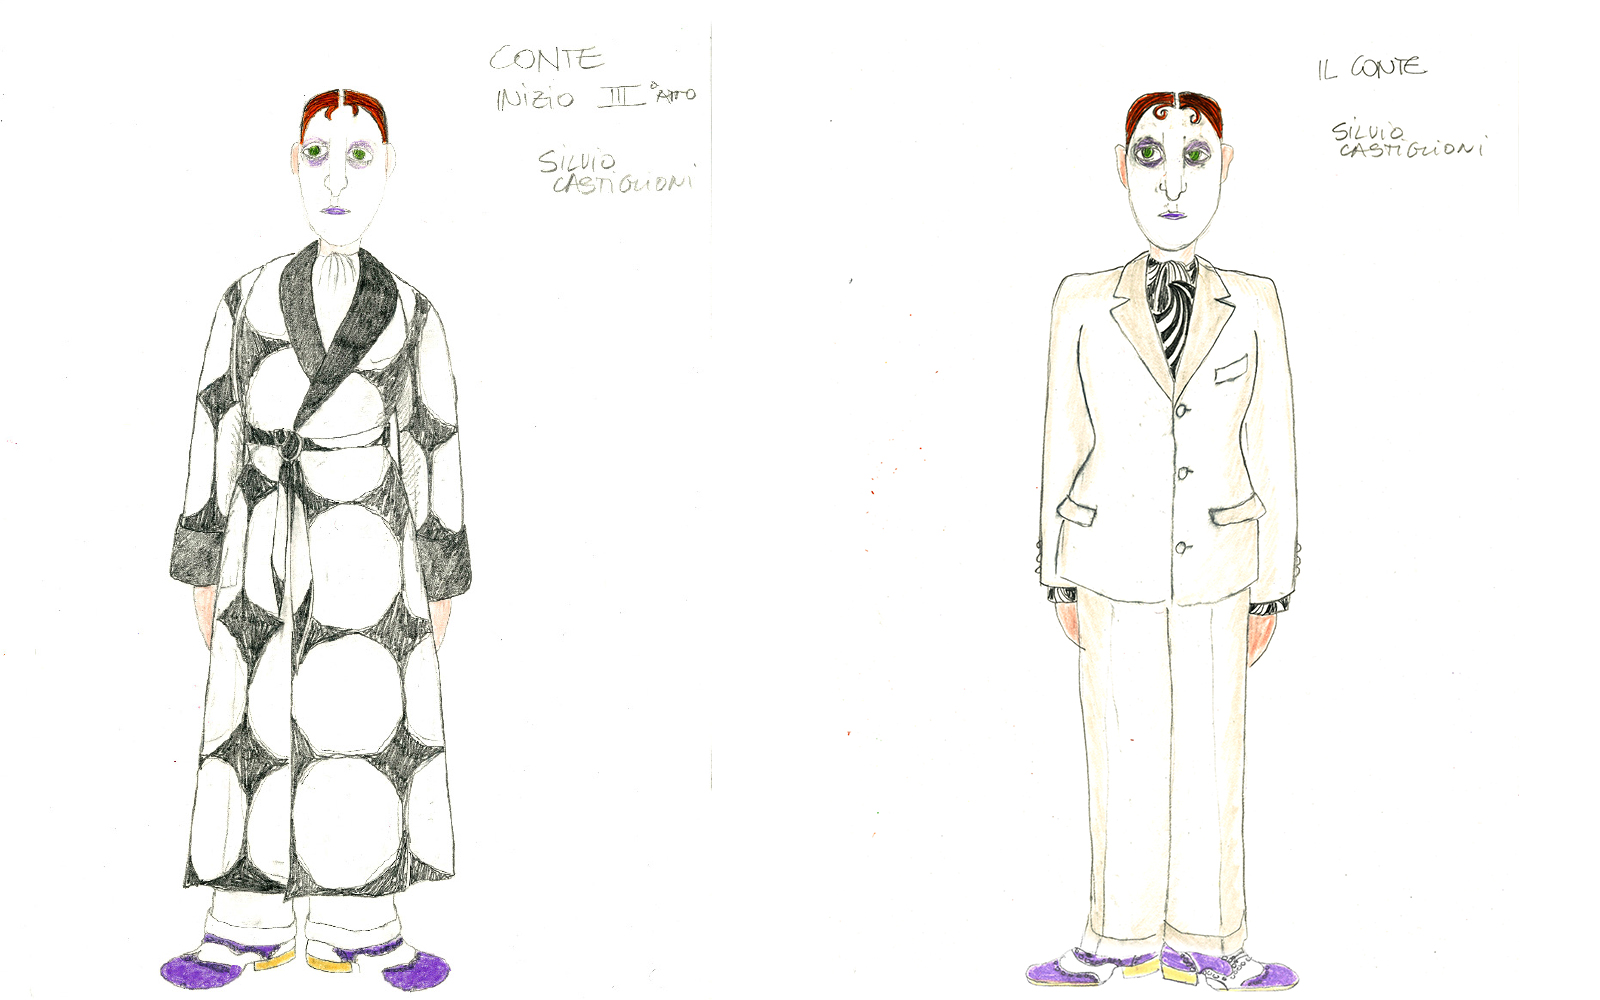 CONTE
INIZIO III° ATTO
SILVIO
CASTIGLIONI
IL CONTE
SILVIO
CASTIGLIONI